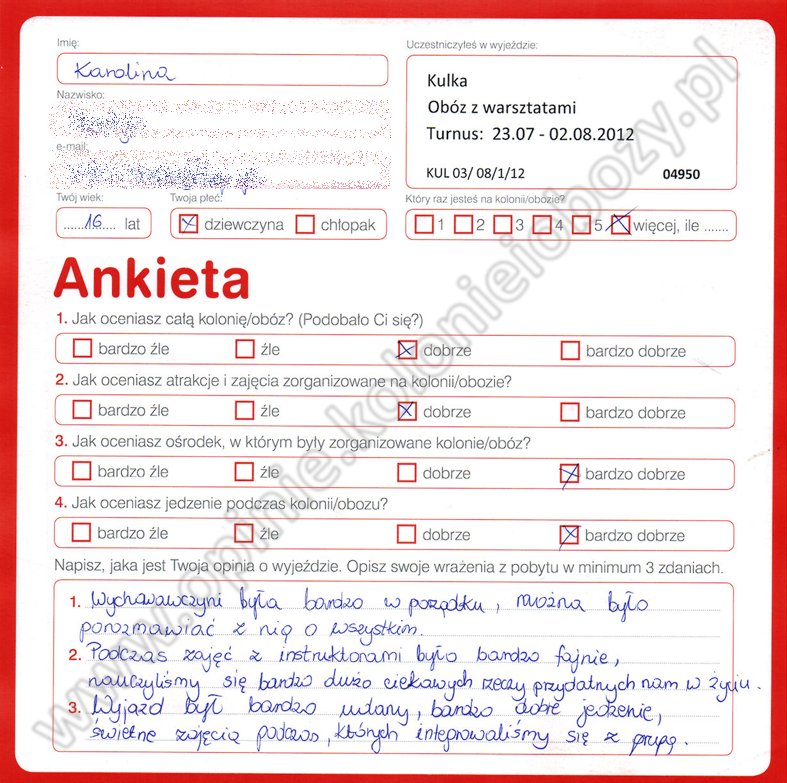 Imię:
Karolina
Uczestniczyłeś w wyjeździe:
Kulka
Obóz z warsztatami
Turnus: 23.07 - 02.08.2012
KUL 03/ 08/1/12 04950
Nazwisko:
e-mail:
Twój wiek:
......16.... lat
Twoja płeć:
dziewczyna chłopak
Który raz jesteś na kolonii/obozie?
1 2 3 4 5 więcej, ile .......
Ankieta
1. Jak oceniasz całą kolonię/obóz? (Podobało Ci się?)
bardzo źle źle dobrze bardzo dobrze
2. Jak oceniasz atrakcje i zajęcia zorganizowane na kolonii/obozie?
bardzo źle źle dobrze bardzo dobrze
3. Jak oceniasz ośrodek, w którym były zorganizowane kolonie/obóz?
bardzo źle źle dobrze bardzo dobrze
4. Jak oceniasz jedzenie podczas kolonii/obozu?
bardzo źle źle dobrze bardzo dobrze
Napisz, jaka jest Twoja opinia o wyjeździe. Opisz swoje wrażenia z pobytu w minimum 3 zdaniach.
1. Wychowawczyni była bardzo w porządku, można było
porozmawiać z nią o wszystkim.
2. Podczas zajęć z instruktorami było bardzo fajnie,
nauczyliśmy się bardzo dużo ciekawych rzeczy przydatnych nam w życiu.
3. Wyjazd był bardzo udany, bardzo dobre jedzenie,
świetne zajęcia podczas, których integrowaliśmy się z grupą.
www.opinie.kolonieiobozy.pl